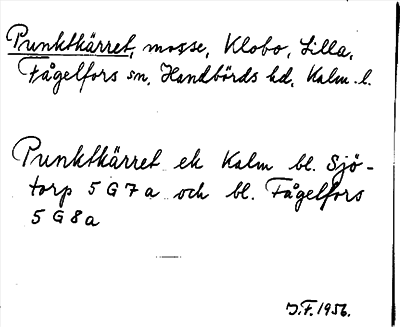 Punktkärret, mosse, Klobo, Lilla,
Fågelfors sn, Handbörds hd, Kalm. l.
Punktkärret ek Kalm bl. Sjö-
torp 5 G 7 a och bl. Fågelfors
5 G 8 a
J.F. 1956.